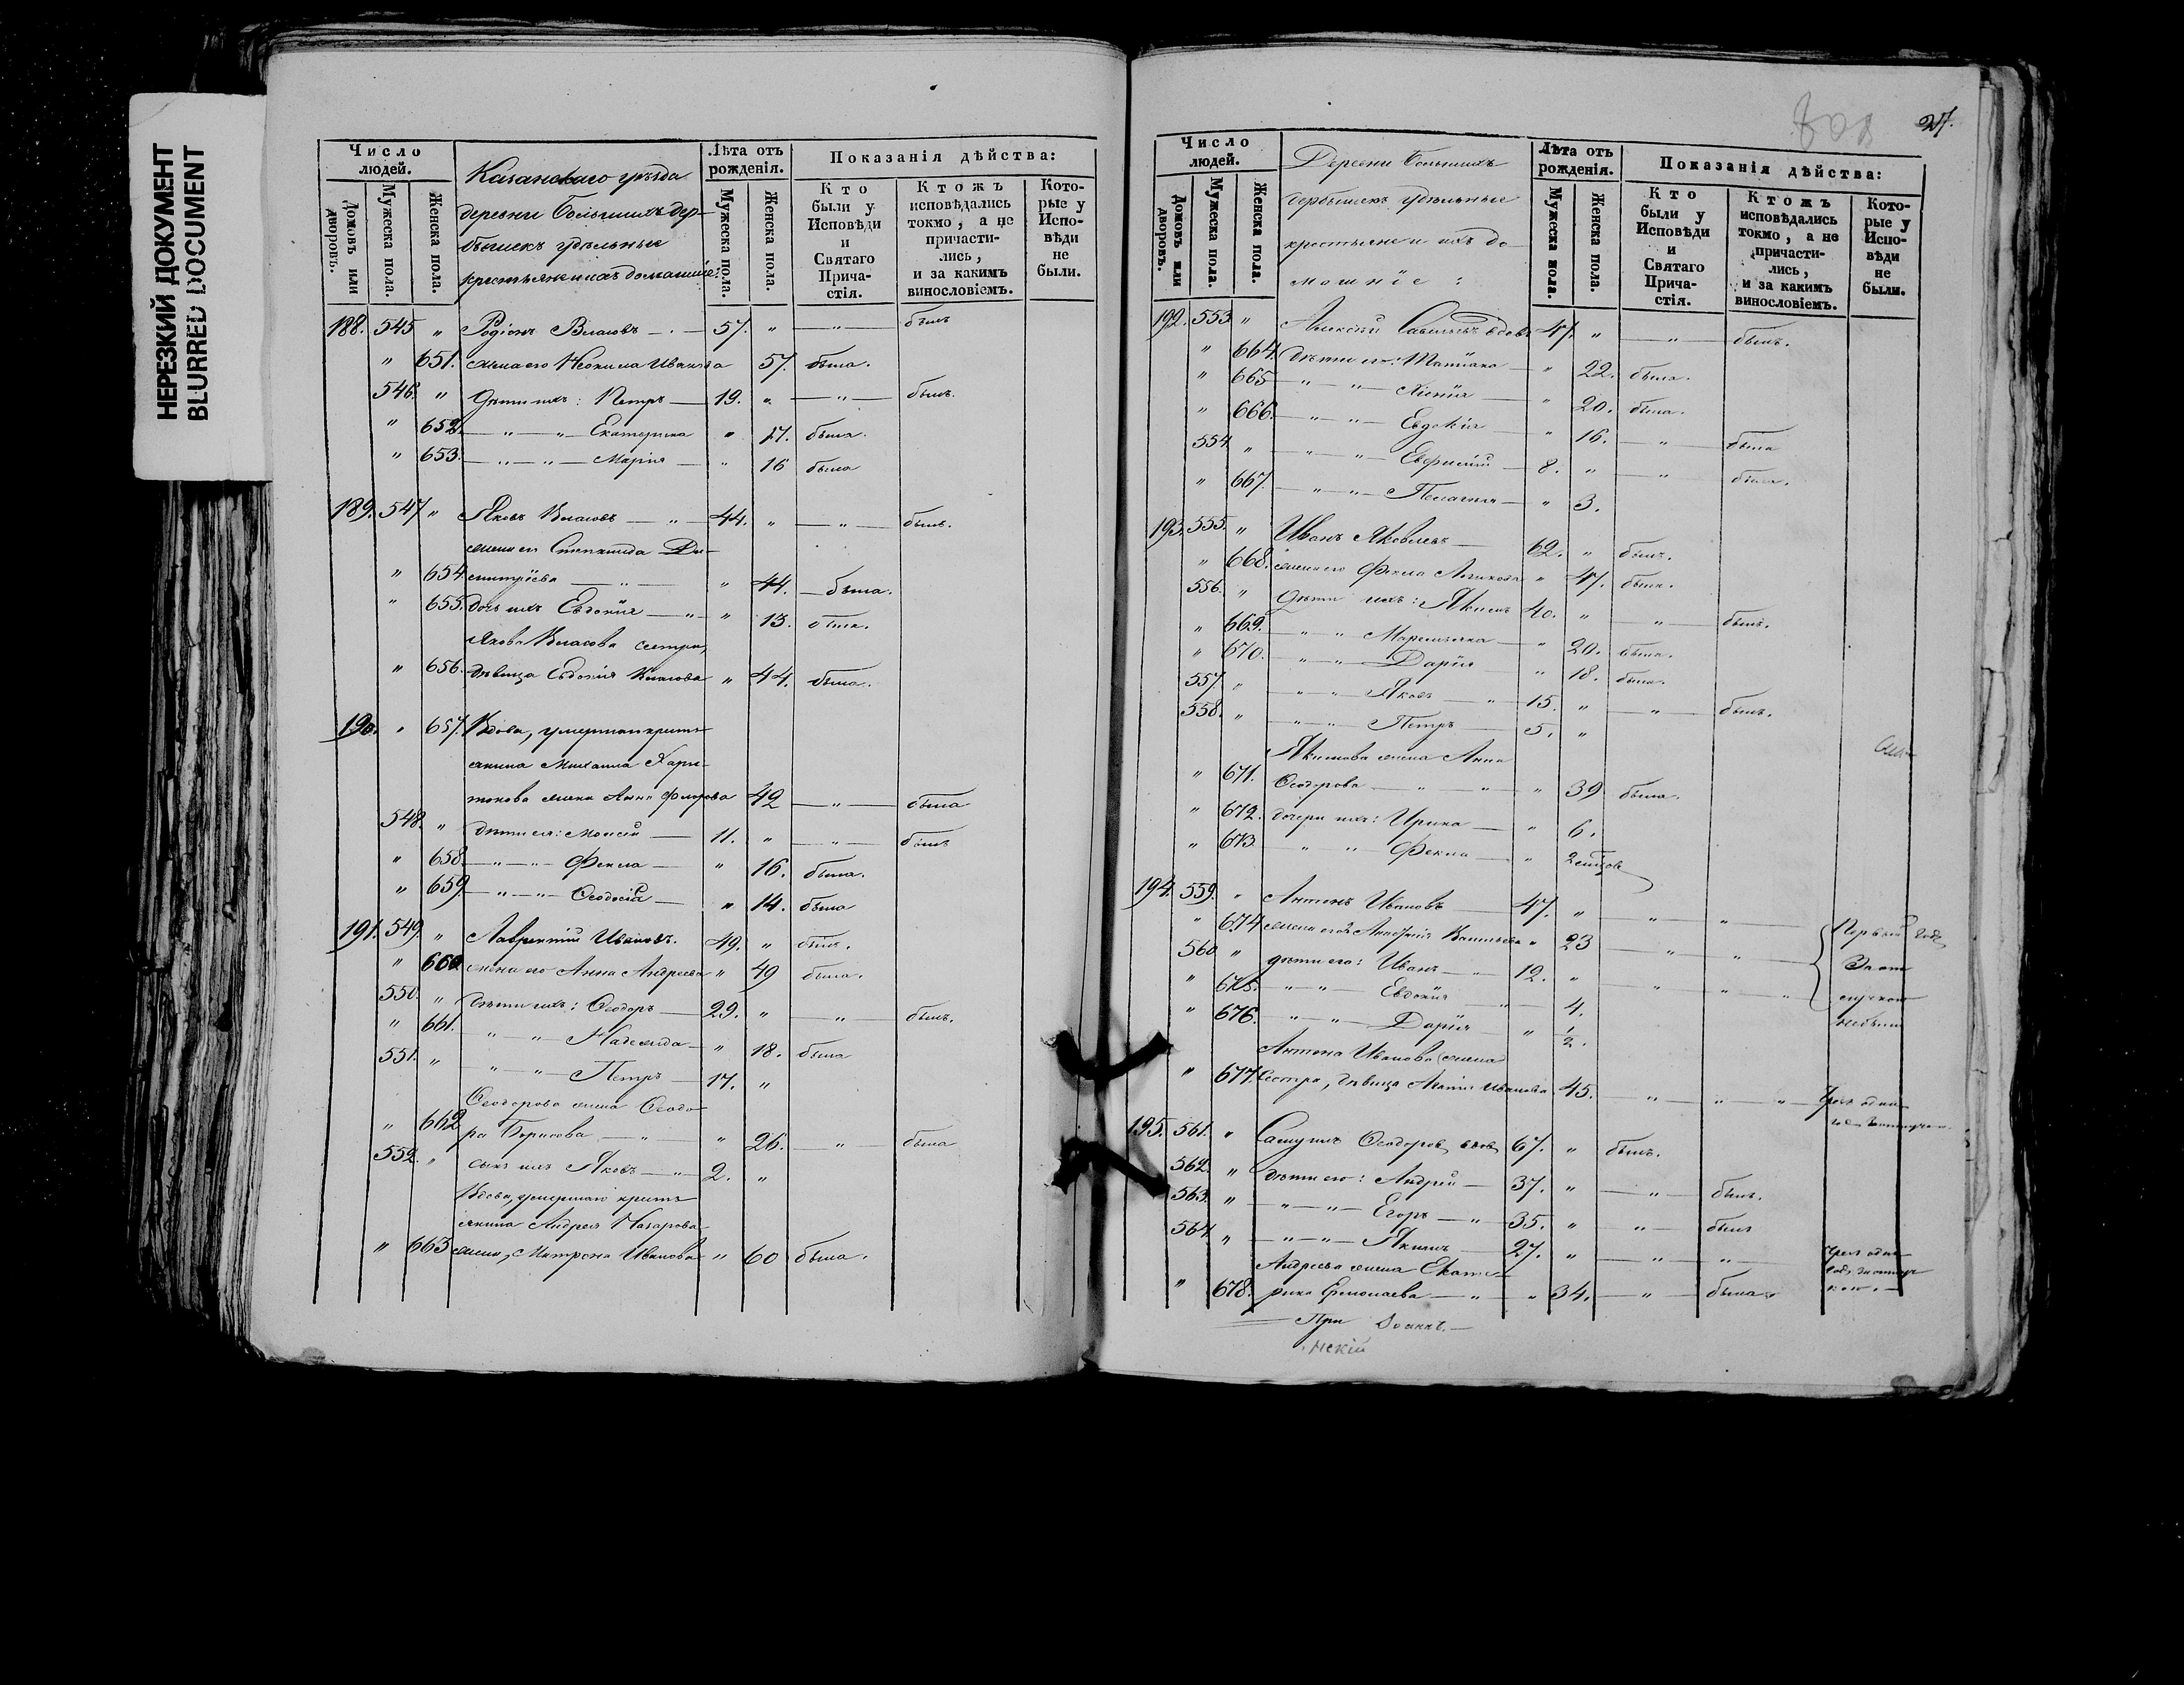 НЕРЕЗКИЙ ДОКУМЕНТ
BLURRED DOCUMENT
Число людей.
Домовъ или дворовъ.
Мужеска пола.
Женска пола.
Казанскаго уѣзда
деревни Большихъ Дер-
бышекъ удѣльные
крестьяне и ихъ домашніе:
Лѣта отъ рожденія.
Мужеска пола.
Женска пола.
Показанія дѣйства:
Кто были у Исповѣди и Святаго Прича- стія.
Ктожъ исповѣдались токмо, а не причасти- лись, и за какимъ винословіемъ.
Кото- рые у Испо- вѣди не были.
188. 545 " Родіонъ Власовъ 57. " — " — былъ
" 651. жена его Иванова 57. была.
546. " дѣти ихъ: Петръ 19. " — " — былъ.
" 652. — " — " — Екатерина " 17. была.
" 653. — " — " — Марія " 16 была
189. 547 " Яковъ Власовъ — " — 44. " — " — былъ.
жена его Степанида Ди-
" 654 митріева — " — " 44. — была.
" 655. дочь ихъ Евдокія — " — " 13. была.
Якова Власова сестра,
" 656. дѣвица Евдокія Власова " 44. была.
190. " 657. Вдова, умершаго кресть-
янина Михаила Хари-
тонова жена Анна Флорова 42 — " — была
548. " дѣти ея: Моисей — 11. " — " — былъ
" 658. — " — " — Фекла — " 16. была.
" 659. — " — " — Ѳеодосія — " 14. была
191. 549. " Лаврентій Ивановъ. 49. " былъ.
" 660 жена его Анна Андреева " 49 была.
550. " дѣти ихъ: Ѳеодоръ — 29. " — " — былъ.
" 661. " — " — Надежда — " 18. была
551. " " — " — Петръ — 17. "
Ѳеодорова жена Ѳеодо-
" 662 ра Борисова — " — " 26. — " — была
552. " сынъ ихъ Яковъ — " — 2. "
Вдова, умершаго кресть-
янина Андрея Назарова
" 663 жена, Матрона Иванова " 60 была.
27.
Число людей.
Домовъ или дворовъ.
Мужеска пола.
Женска пола.
Деревни Большихъ
Дербышекъ удѣльные
крестьяне и ихъ до-
машніе:
Лѣта отъ рожденія.
Мужеска пола.
Женска пола.
Показанія дѣйства:
Кто были у Исповѣди и Святаго Прича- стія.
Ктожъ исповѣдались токмо, а не причасти- лись, и за какимъ винословіемъ.
Кото- рые у Испо- вѣди не были.
192. 553 " Алексѣй вдовъ 47. " — " — былъ.
" 664. дѣти его: Татіана — " 22. была.
" 665 " — " — Ксенія — " 20. была.
" 666. — " — Евдокія — " 16. — " — была
554 " " — " — Евфимій — 8. " — " —
" 667. — " — " — Пелагия — " 3.
193. 555. " Иванъ Яковлевъ — 62. " былъ.
" 668. жена его Фекла " 47. была.
556. " дѣти ихъ: Якимъ 40. " — " — былъ.
" 669. — " — " — " 20. была.
" 670. — " — " — Дарія " 18. была.
557. " — " — " — Яковъ — " — 15. " — " — былъ.
558. " — " — " — Петръ — 5. "
Якимова жена Анна
" 671. Ѳеодорова — " — " — " 39 была.
" 672. дочери ихъ: Ирина — " 6.
" 673 " " Фекла — " 2
194. 559. " Антонъ Ивановъ — 47. " — " — " —
" 674 жена его Васильева " 23 — " — " —
560 " дѣти его: Иванъ — " — 12. " — " — " — " —
" 675. — " — " — Евдокія — " — 4.
" 676. — " — " — Дарія — " ½.
Первый годъ
Антона Иванова
" 677. сестра, дѣвица Иванова 45. — " — " — " —
195. 561. " Самуилъ Ѳеодоровъ вдовъ 67. " былъ.
562. " дѣти его: Андрей — 37. " — " — былъ.
563. " — " — " — Егоръ — " — 35. " " — былъ
564 " — " — " — Якимъ 27. " — " — " —
Андреева жена Екате-
" 678. рина Ермолаева — " — " 34. — " — была